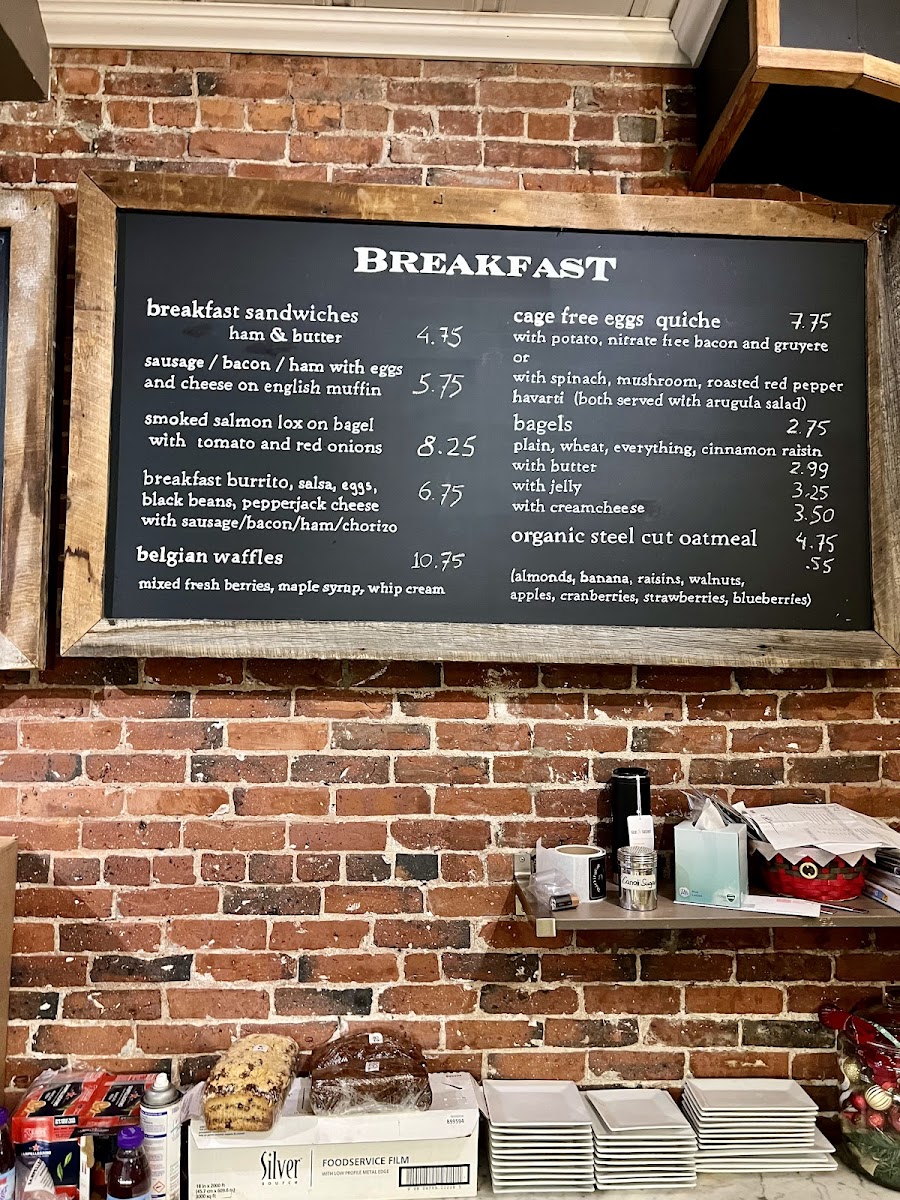 BREAKFAST
breakfast sandwiches
ham & butter 4.75
sausage / bacon / ham with eggs
and cheese on english muffin 5.75
smoked salmon lox on bagel
with tomato and red onions 8.25
breakfast burrito, salsa, eggs,
black beans, pepperjack cheese 6.75
with sausage/bacon/ham/chorizo
belgian waffles 10.75
mixed fresh berries, maple syrup, whip cream
cage free eggs quiche 7.75
with potato, nitrate free bacon and gruyere
or
with spinach, mushroom, roasted red pepper
havarti (both served with arugula salad)
bagels 2.75
plain, wheat, everything, cinnamon raisin
with butter 2.99
with jelly 3.25
with creamcheese 3.50
organic steel cut oatmeal 4.75
.55
(almonds, banana, raisins, walnuts,
apples, cranberries, strawberries, blueberries)
Silver
SOURCE
FOODSERVICE FILM
WITH LOW PROFILE METAL EDGE
18 in x 2000 ft